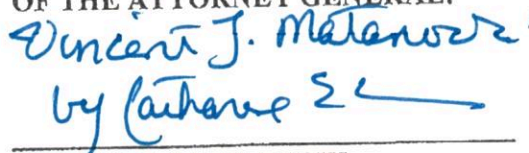 OF THE ATTORNEY GENERAL:
Vincent J. Matanoski
by Catharine E